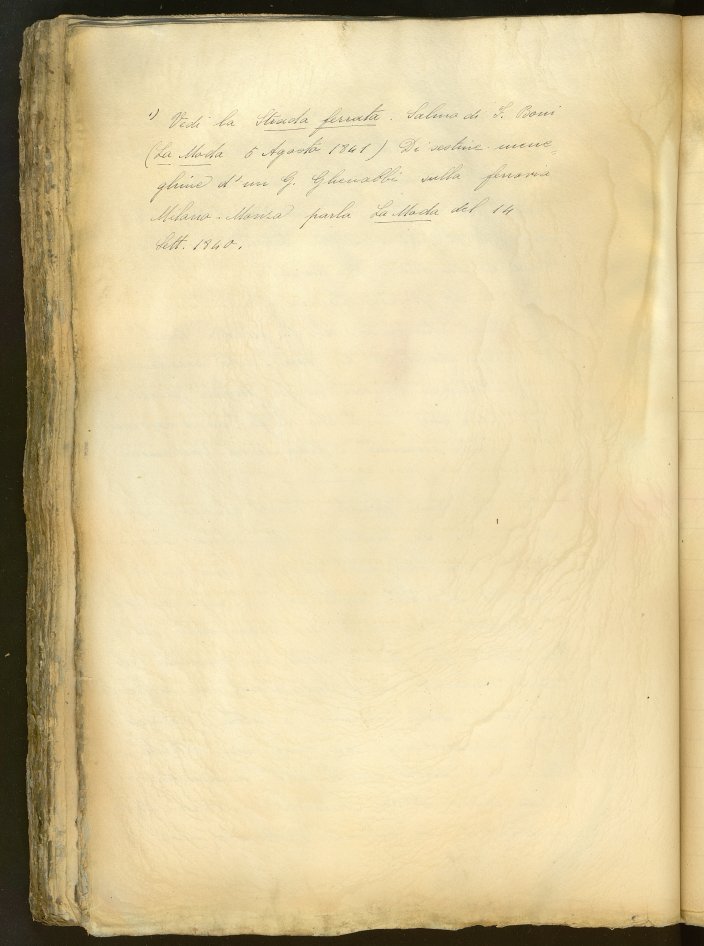 1) Vedi la Strada ferrata. Salmo di S. Boni
(La Moda 5 Agosto 1841) Di sestine mene-
ghine d'un G. Gherardi sulla ferrovia
Milano-Monza parla La Moda del 14
Sett. 1840.